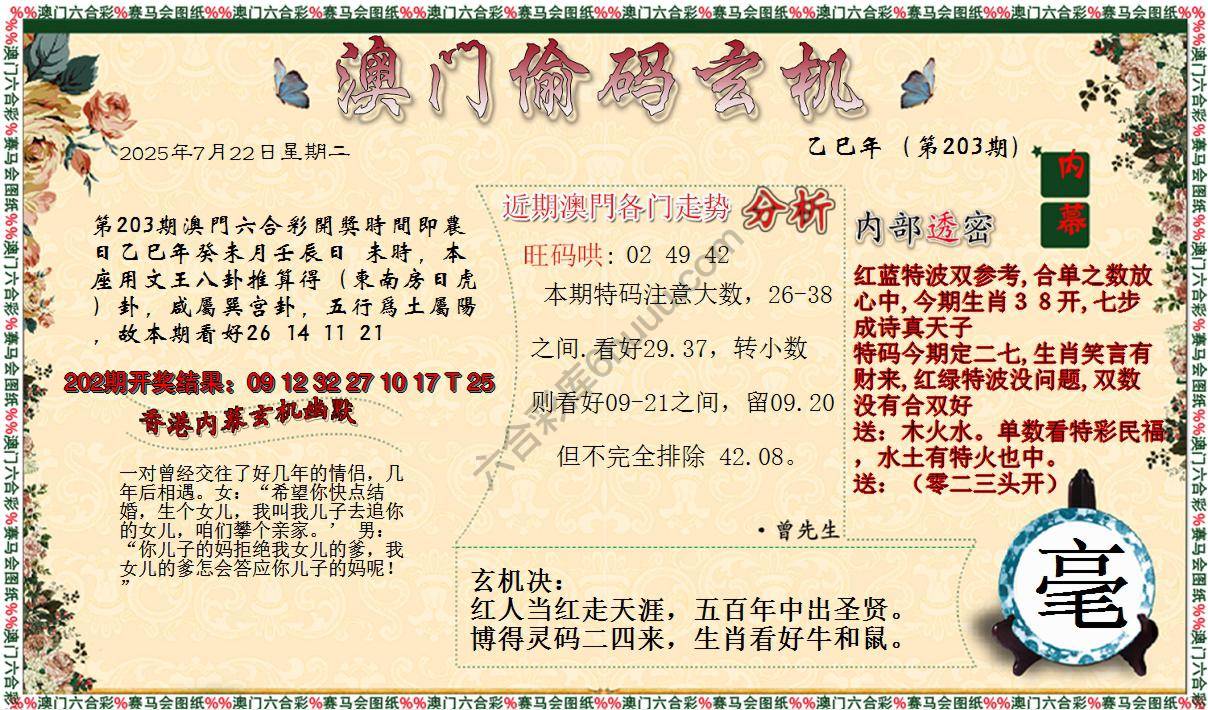 %%澳门六合彩%赛马会图纸%%澳门六合彩%赛马会图纸%%澳门六合彩%赛马会图纸%%澳门六合彩%赛马会图纸%%澳门六合彩%赛马会图纸%%澳门六合彩%赛马会图纸%%
澳门偷码玄机
2025年7月22日星期二
乙巳年（第203期）
内幕
第203期澳門六合彩開獎時間即農
日乙巳年癸未月壬辰日 未時，本
座用文王八卦推算得（東南房日虎
）卦，咸屬巽宫卦，五行爲土屬陽
，故本期看好26 14 11 21
202期开奖结果：09 12 32 27 10 17 T 25
香港内幕玄机幽默
一对曾经交往了好几年的情侣，几
年后相遇。女：“希望你快点结
婚，生个女儿，我叫我儿子去追你
的女儿，咱们攀个亲家。’ 男：
“你儿子的妈拒绝我女儿的爹，我
女儿的爹怎会答应你儿子的妈呢！
”
近期澳門各门走势 分析
旺码哄: 02 49 42
本期特码注意大数，26-38
之间.看好29.37，转小数
则看好09-21之间，留09.20
但不完全排除 42.08。
·曾先生
内部透密
红蓝特波双参考,合单之数放
心中,今期生肖３８开,七步
成诗真天子
特码今期定二七,生肖笑言有
财来,红绿特波没问题,双数
没有合双好
送：木火水。单数看特彩民福
，水土有特火也中。
送：（零二三头开）
玄机决：
红人当红走天涯，五百年中出圣贤。
博得灵码二四来，生肖看好牛和鼠。
毫
%%澳门六合彩%赛马会图纸%%澳门六合彩%赛马会图纸%%澳门六合彩%赛马会图纸%%澳门六合彩%赛马会图纸%%澳门六合彩%赛马会图纸%%澳门六合彩%赛马会图纸%%